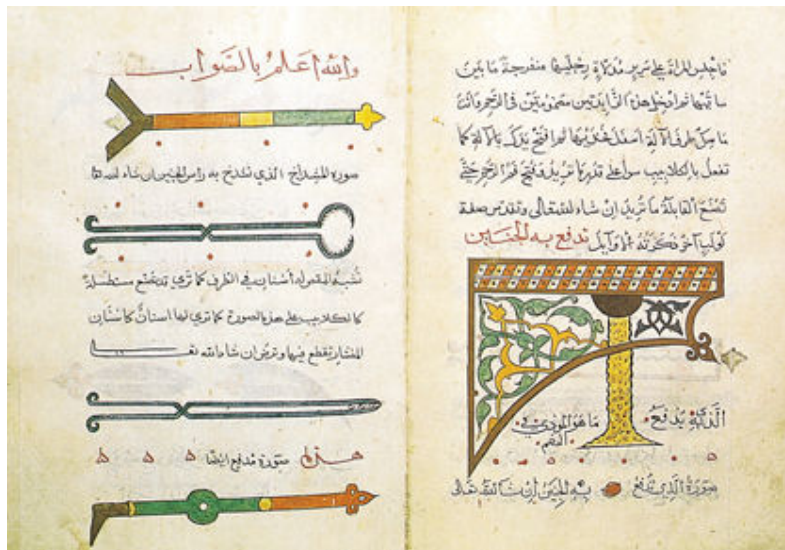 فاجلس المراة على سرير مدلاة رجليها منفرجة ما بين
ساقيها ثم ادخل هذه الزايدتين مضمومتين في الرحم وانت
ماسك طرف الآلة اسفل ثم افتح يدك بالآلة كما
تفعل بالكلاليب سوا على قدر ما تريد وتفتح فم الرحم حتى
تصنع القابلة ما تريد ان شاء الله تعالى وتقدس صفة
لولب آخر ذكرته الاوايل تدفع به الجنين
الذي به يدفع ما هو في
صورة الذي تدفع به الجنين ان شا الله تعالى
والله اعلم بالصواب
صورة المشداخ الذي تشدخ به راس الجنين ان شاء الله تعا
تشبه المقص له اسنان في الطرف كما تري قد تصنع مستطيلة
كالكلاليب على هذه الصورة كما تري لها اسنان كاسنان
المنشار يقطع فيها وترض ان شاء الله تعا
هذه صورة مدفع ايضا